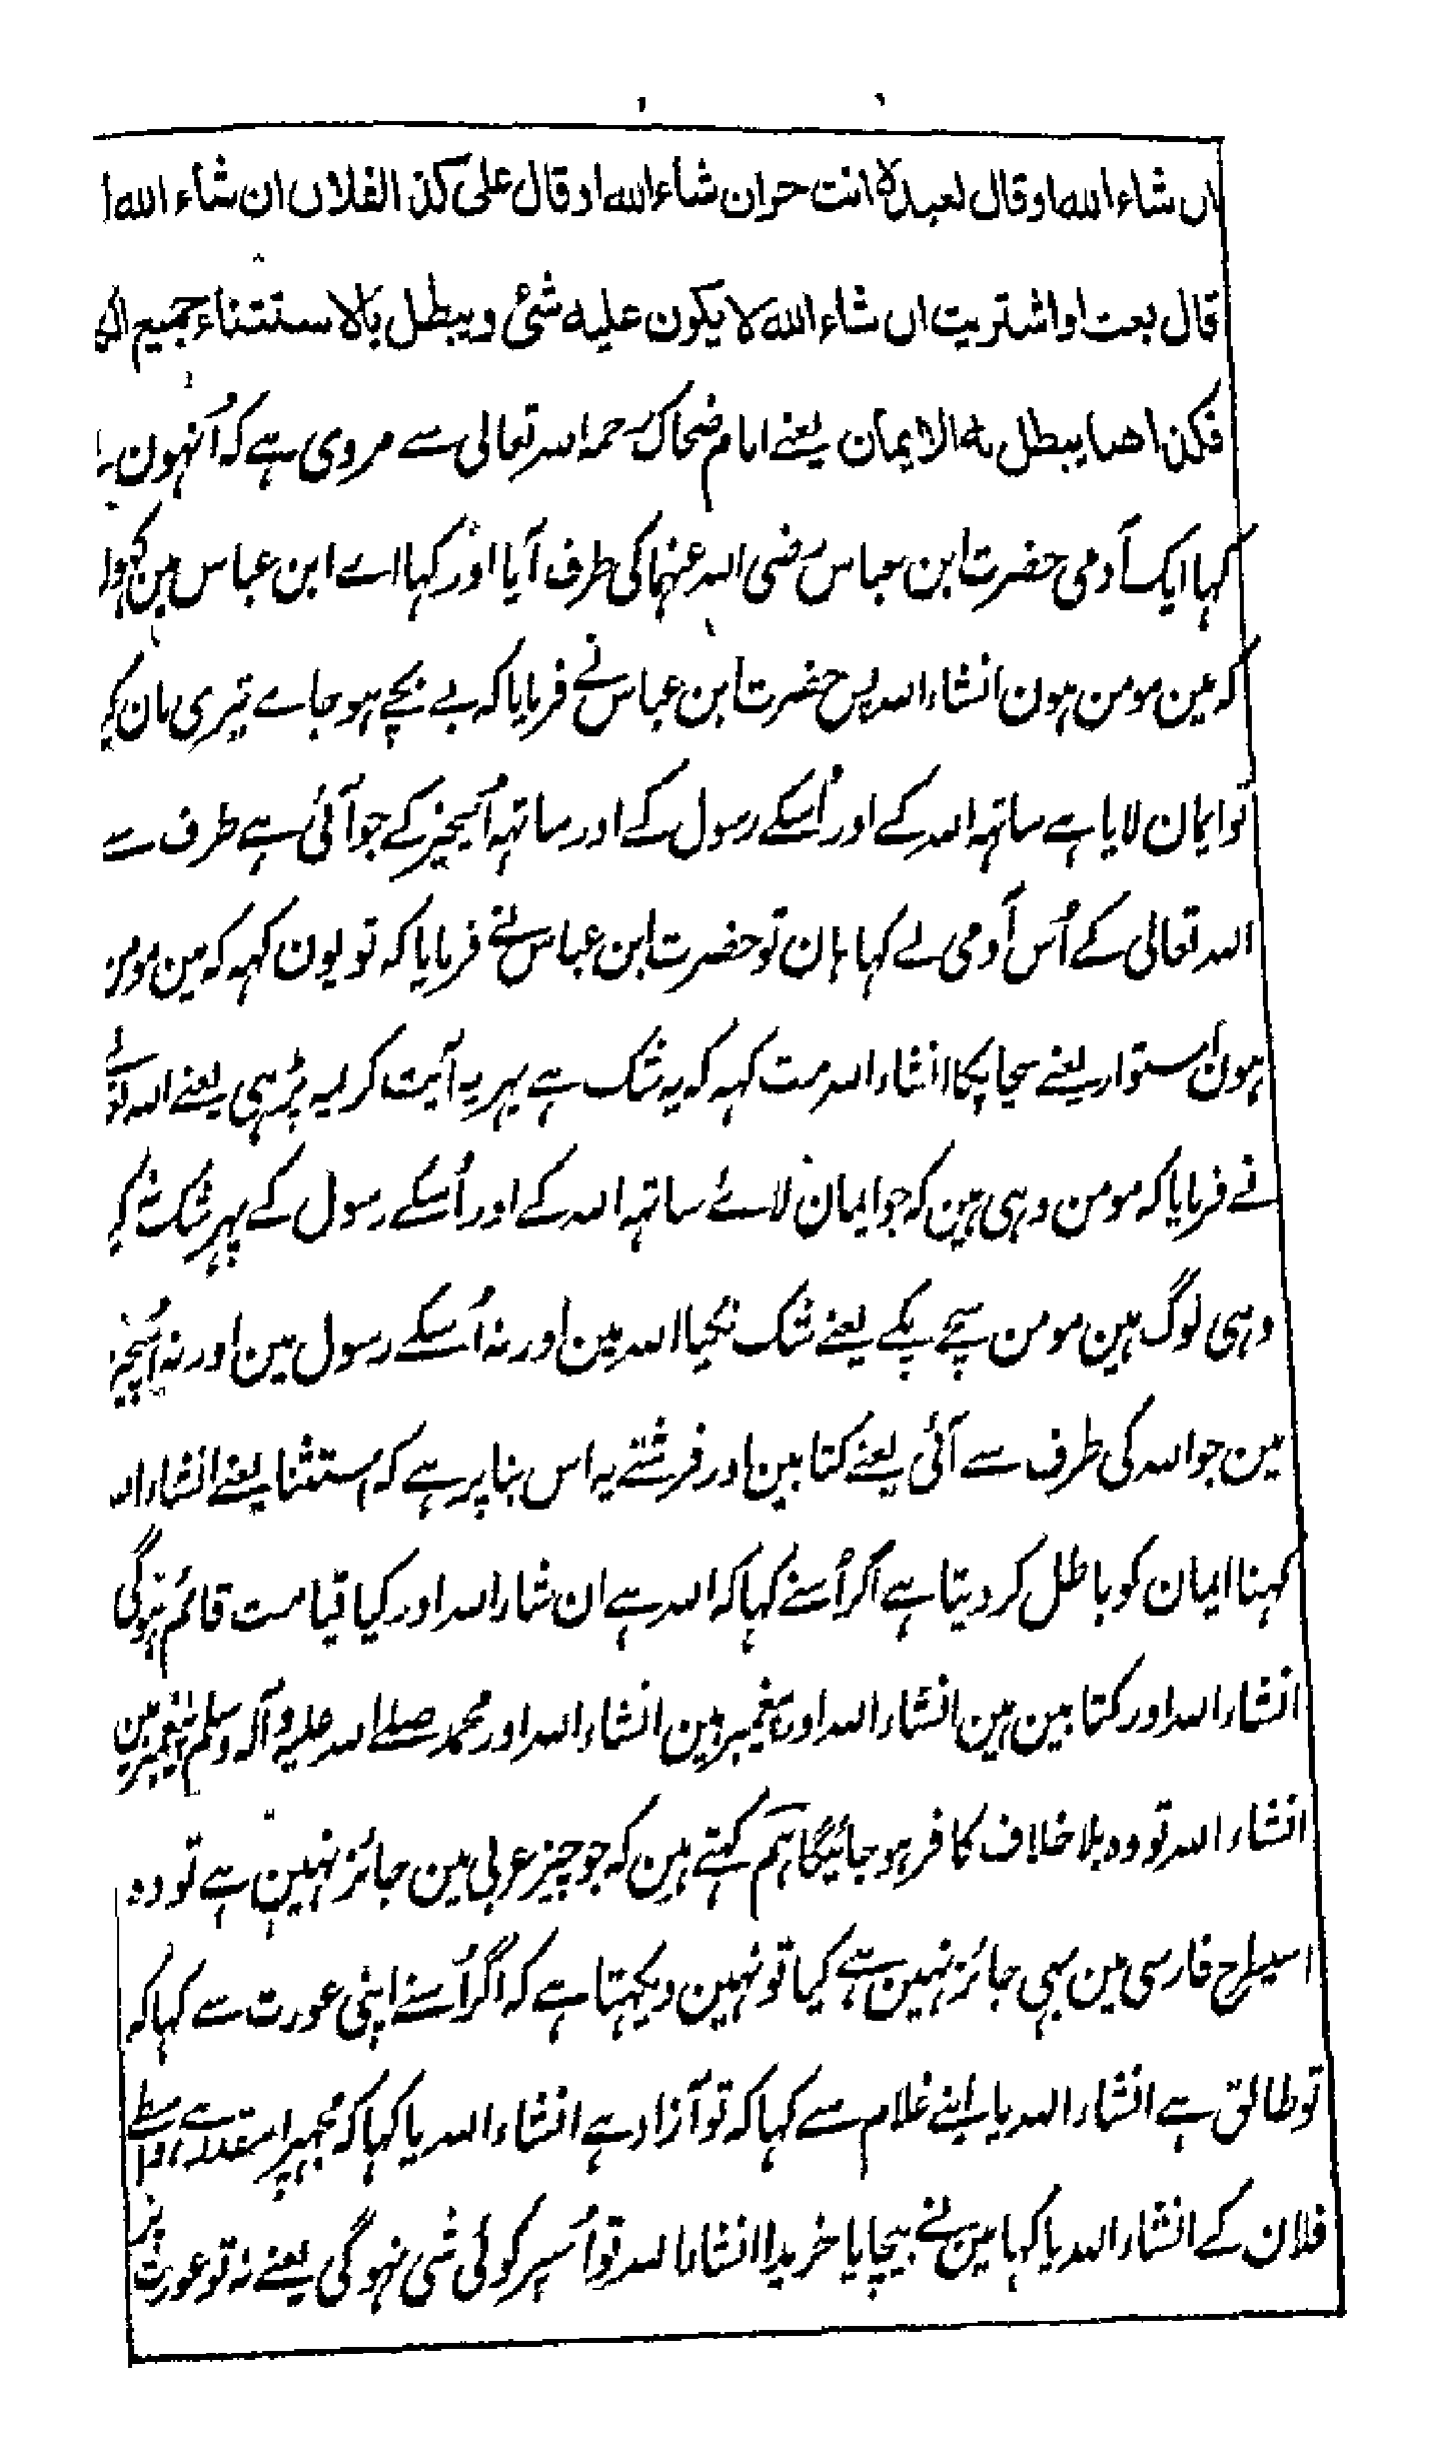 ان شاء الله او قال لعبده انت حر ان شاء الله او قال على كذا لفلان ان شاء الله ا
قال بعت او اشتريت ان شاء الله لا يكون عليه شئ ويبطل بالاستثناء جميع
فكذا ههنا يبطل به الايمان یعنے امام ضحاک رحمہ اللہ تعالی سے مروی ہے کہ اُنہون
کہا ایک آدمی حضرت ابن عباس رضی اللہ عنہما کی طرف آیا اور کہا اے ابن عباس مین
کہ مین مومن ہون انشاء اللہ پس حضرت ابن عباس نے فرمایا کہ بے بچے ہو جاے تیری مان کیا
تو ایمان لایا ہے ساتہہ اللہ کے اور اُسکے رسول کے اور ساتہہ اُسچیز کے جو آئی ہے طرف سے
اللہ تعالی کے اُس آدمی نے کہا ہان تو حضرت ابن عباس نے فرمایا کہ تو یون کہہ کہ مین مومن
ہون اُستوار یعنے سچا پکا انشاء اللہ مت کہہ کہ یہ شک ہے پہر یہ آیت کریمہ پڑہی یعنے اللہ تعالے
نے فرمایا کہ مومن وہی ہین کہ جو ایمان لائے ساتہہ اللہ کے اور اُسکے رسول کے پہر شک نہ کیا
وہی لوگ ہین مومن سچے پکے یعنے شک نکیا اللہ مین اور نہ اُسکے رسول مین اور نہ اُسچیز
مین جو اللہ کی طرف سے آئی یعنے کتابین اور فرشتے یہ اس بنا پر ہے کہ استثنا یعنے انشاء اللہ
کہنا ایمان کو باطل کر دیتا ہے اگر اُسنے کہا کہ اللہ ہے ان شاء اللہ اور کیا قیامت قائم ہوگی
انشاء اللہ اور کتابین ہین انشاء اللہ اور پیغمبر ہین انشاء اللہ اور محمد صلے اللہ علیہ وآلہ وسلم پیغمبر ہین
انشاء اللہ تو وہ بلا خلاف کافر ہو جائیگا ہم کہتے ہین کہ جو چیز عربی مین جائز نہین ہے تو وہ
اسیطرح فارسی مین بہی جائز نہین ہے کیا تو نہین دیکہتا ہے کہ اگر اُسنے اپنی عورت سے کہا کہ
تو طالق ہے انشاء اللہ یا اپنے غلام سے کہا کہ تو آزاد ہے انشاء اللہ یا کہا کہ مجہپر اسقدر ہے واسطے
فلان کے انشاء اللہ یا کہا مین نے بیچا یا خریدا انشاء اللہ تو اُسپر کوئی شی نہوگی یعنے نہ تو عورت پر